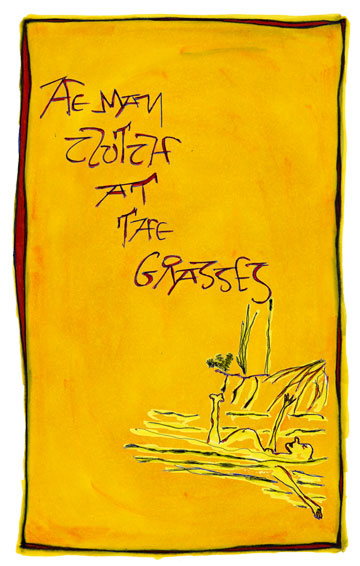 HE MAY
CLUTCH
AT
THE
GRASSES